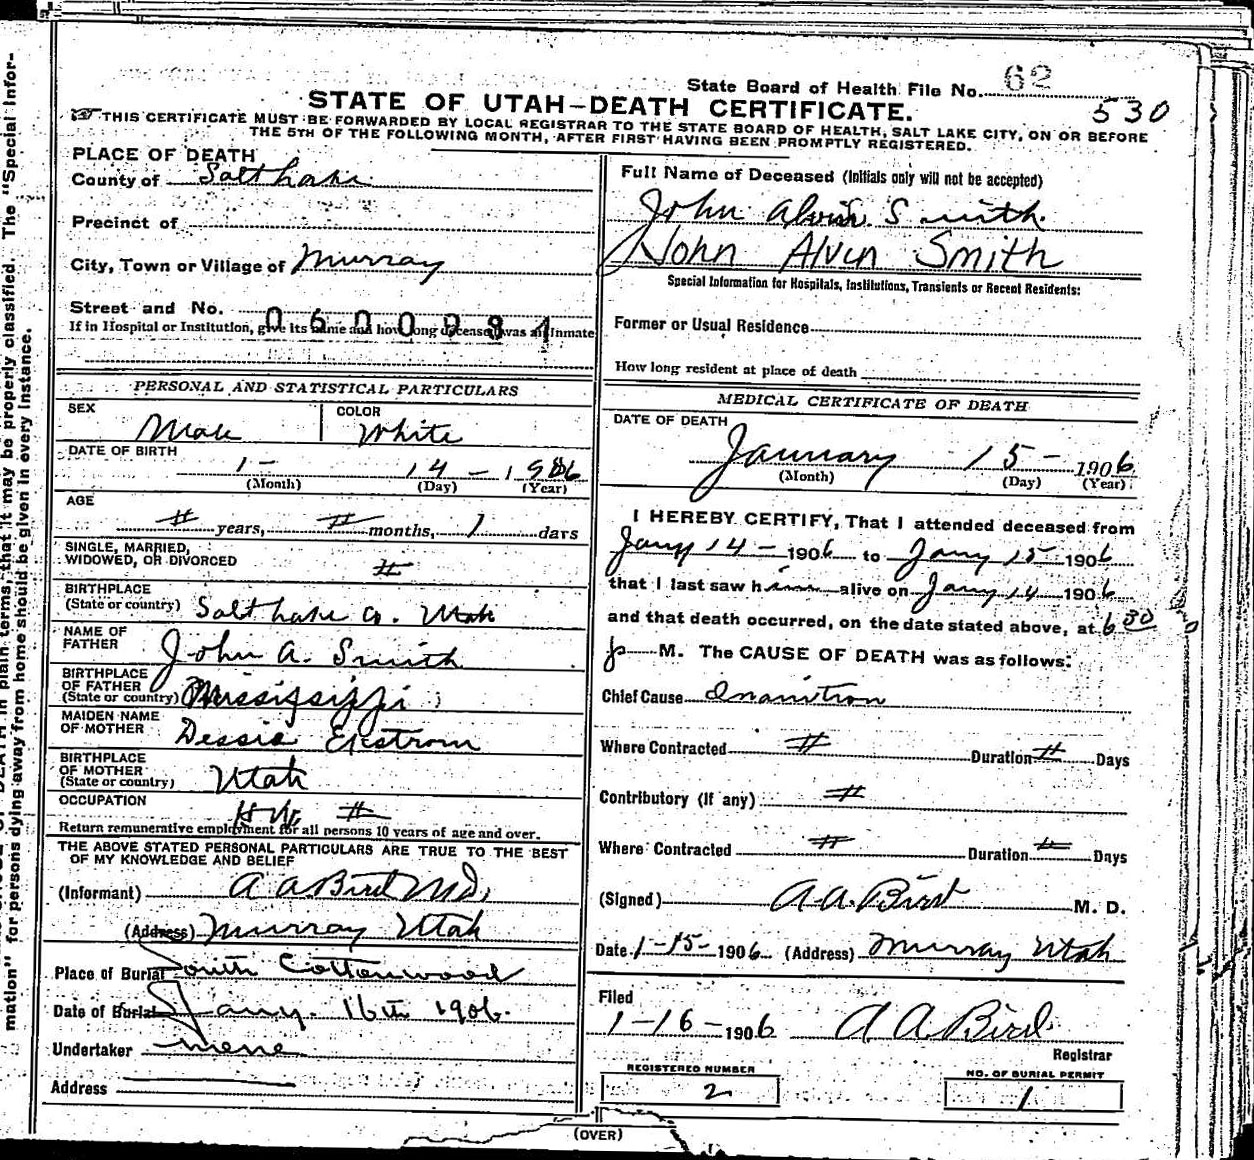 State Board of Health File No. 62
530
STATE OF UTAH—DEATH CERTIFICATE.
THIS CERTIFICATE MUST BE FORWARDED BY LOCAL REGISTRAR TO THE STATE BOARD OF HEALTH, SALT LAKE CITY, ON OR BEFORE
THE 5TH OF THE FOLLOWING MONTH, AFTER FIRST HAVING BEEN PROMPTLY REGISTERED.
PLACE OF DEATH
County of Salt Lake
Precinct of
City, Town or Village of Murray
Street and No.
If in Hospital or Institution, give its name and how long deceased was an Inmate
0600081
Full Name of Deceased (Initials only will not be accepted)
John Alvin Smith.
John Alvin Smith
Special Information for Hospitals, Institutions, Transients or Recent Residents:
Former or Usual Residence
How long resident at place of death
PERSONAL AND STATISTICAL PARTICULARS
SEX
Male
COLOR
White
DATE OF BIRTH
1- 14-1906
(Month) (Day) (Year)
AGE
# years, # months, 1 days
SINGLE, MARRIED,
WIDOWED, OR DIVORCED #
BIRTHPLACE
(State or country) Salt Lake Co. Utah
NAME OF
FATHER John A. Smith
BIRTHPLACE
OF FATHER
(State or country) Mississippi
MAIDEN NAME
OF MOTHER Dessie Ekstrom
BIRTHPLACE
OF MOTHER
(State or country) Utah
OCCUPATION #
Return remunerative employment for all persons 10 years of age and over.
THE ABOVE STATED PERSONAL PARTICULARS ARE TRUE TO THE BEST
OF MY KNOWLEDGE AND BELIEF
(Informant) A A Bird M.D.
(Address) Murray Utah
Place of Burial South Cottonwood
Date of Burial Jany. 16th 1906.
Undertaker
Address
MEDICAL CERTIFICATE OF DEATH
DATE OF DEATH
January 15- 1906
(Month) (Day) (Year)
I HEREBY CERTIFY, That I attended deceased from
Jany 14- 1906 to Jany 15 1906
that I last saw him alive on Jany 14 1906
and that death occurred, on the date stated above, at 6 30
P M. The CAUSE OF DEATH was as follows:
Chief Cause Inanition
Where Contracted # Duration # Days
Contributory (if any) #
Where Contracted # Duration # Days
(Signed) A.A. Bird M. D.
Date 1-15- 1906 (Address) Murray Utah
Filed
1-16- 1906 A A Bird
Registrar
REGISTERED NUMBER
2
NO. OF BURIAL PERMIT
1
(OVER)
The "Special Infor-
mation" for persons dying away from home should be given in every instance.
DEATH in plain terms, that it may be properly classified.